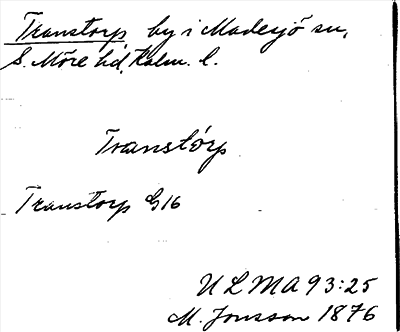 Transtorp by i Madesjö sn,
S. Möre hd, Kalm. l.
Transtórp
Transtorp G16
ULMA 93:25
M. Jonsson 1876